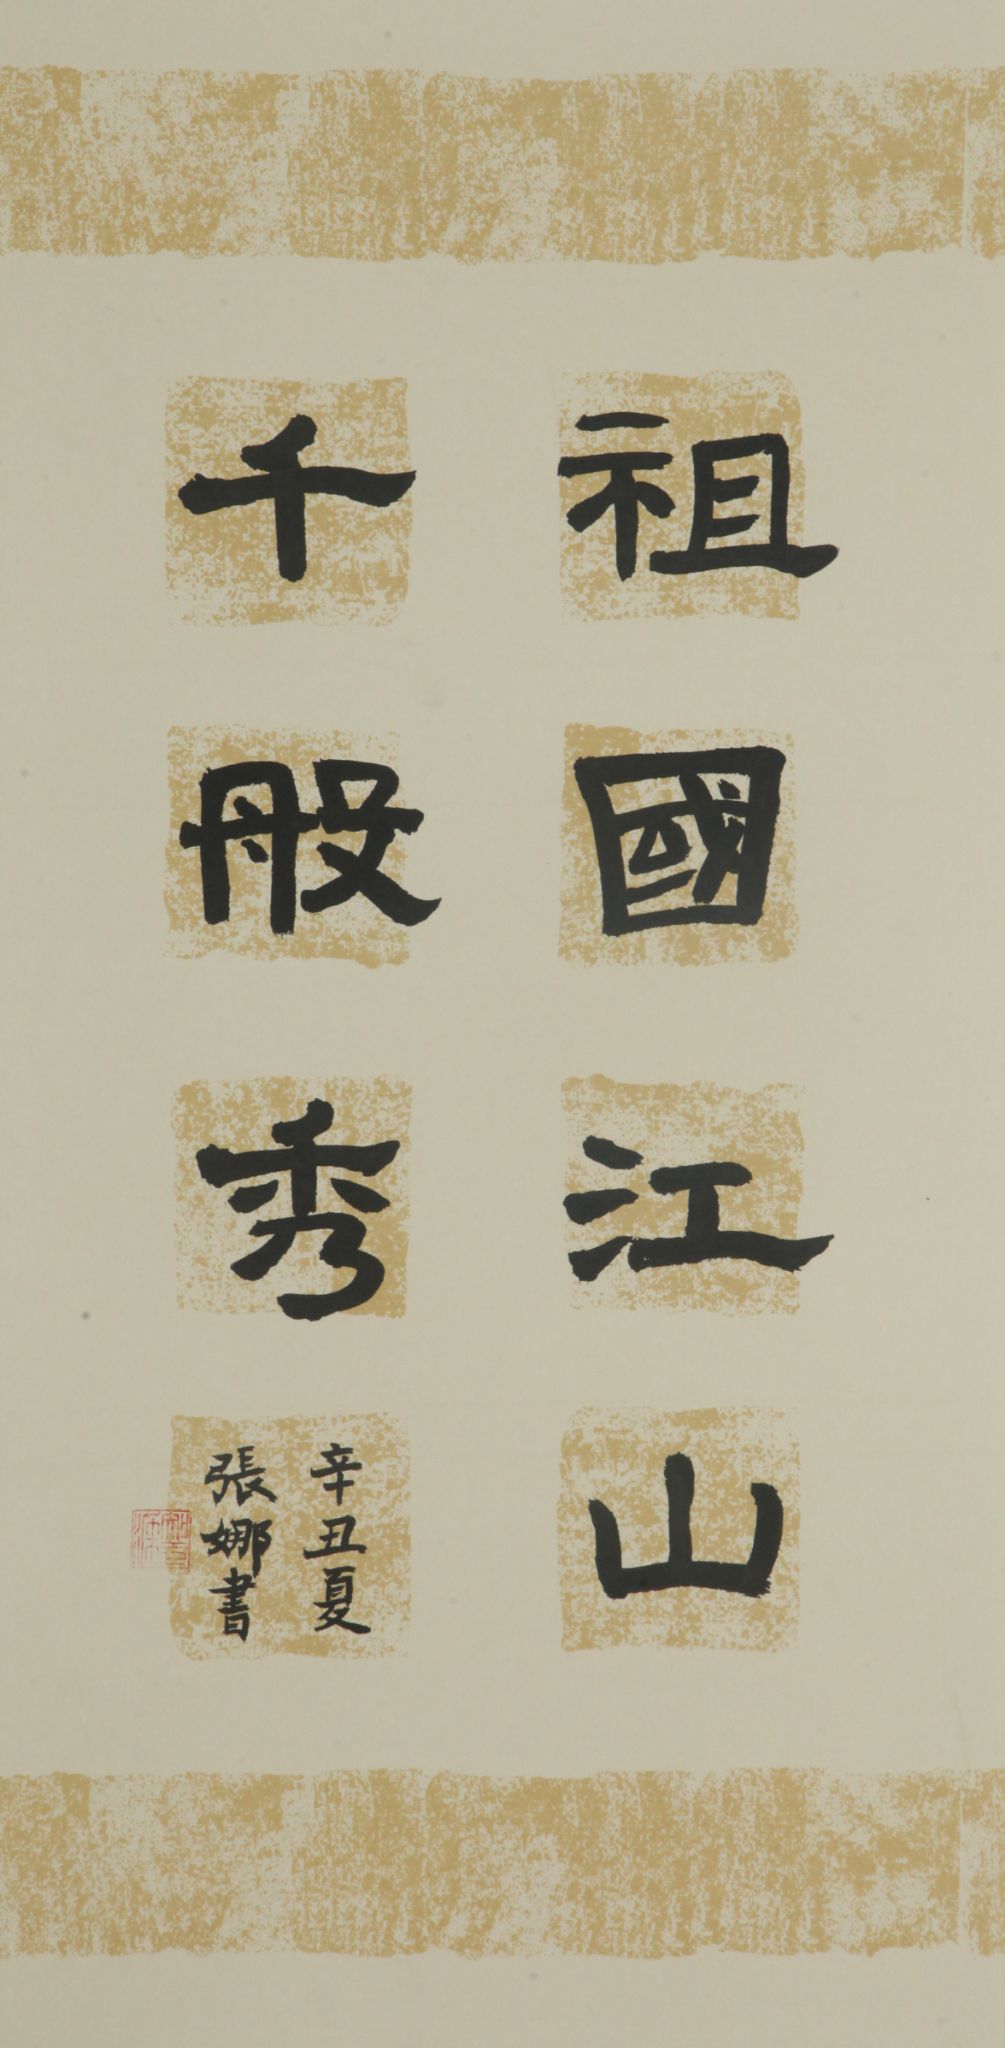 祖國江山
千般秀
辛丑夏
張娜書